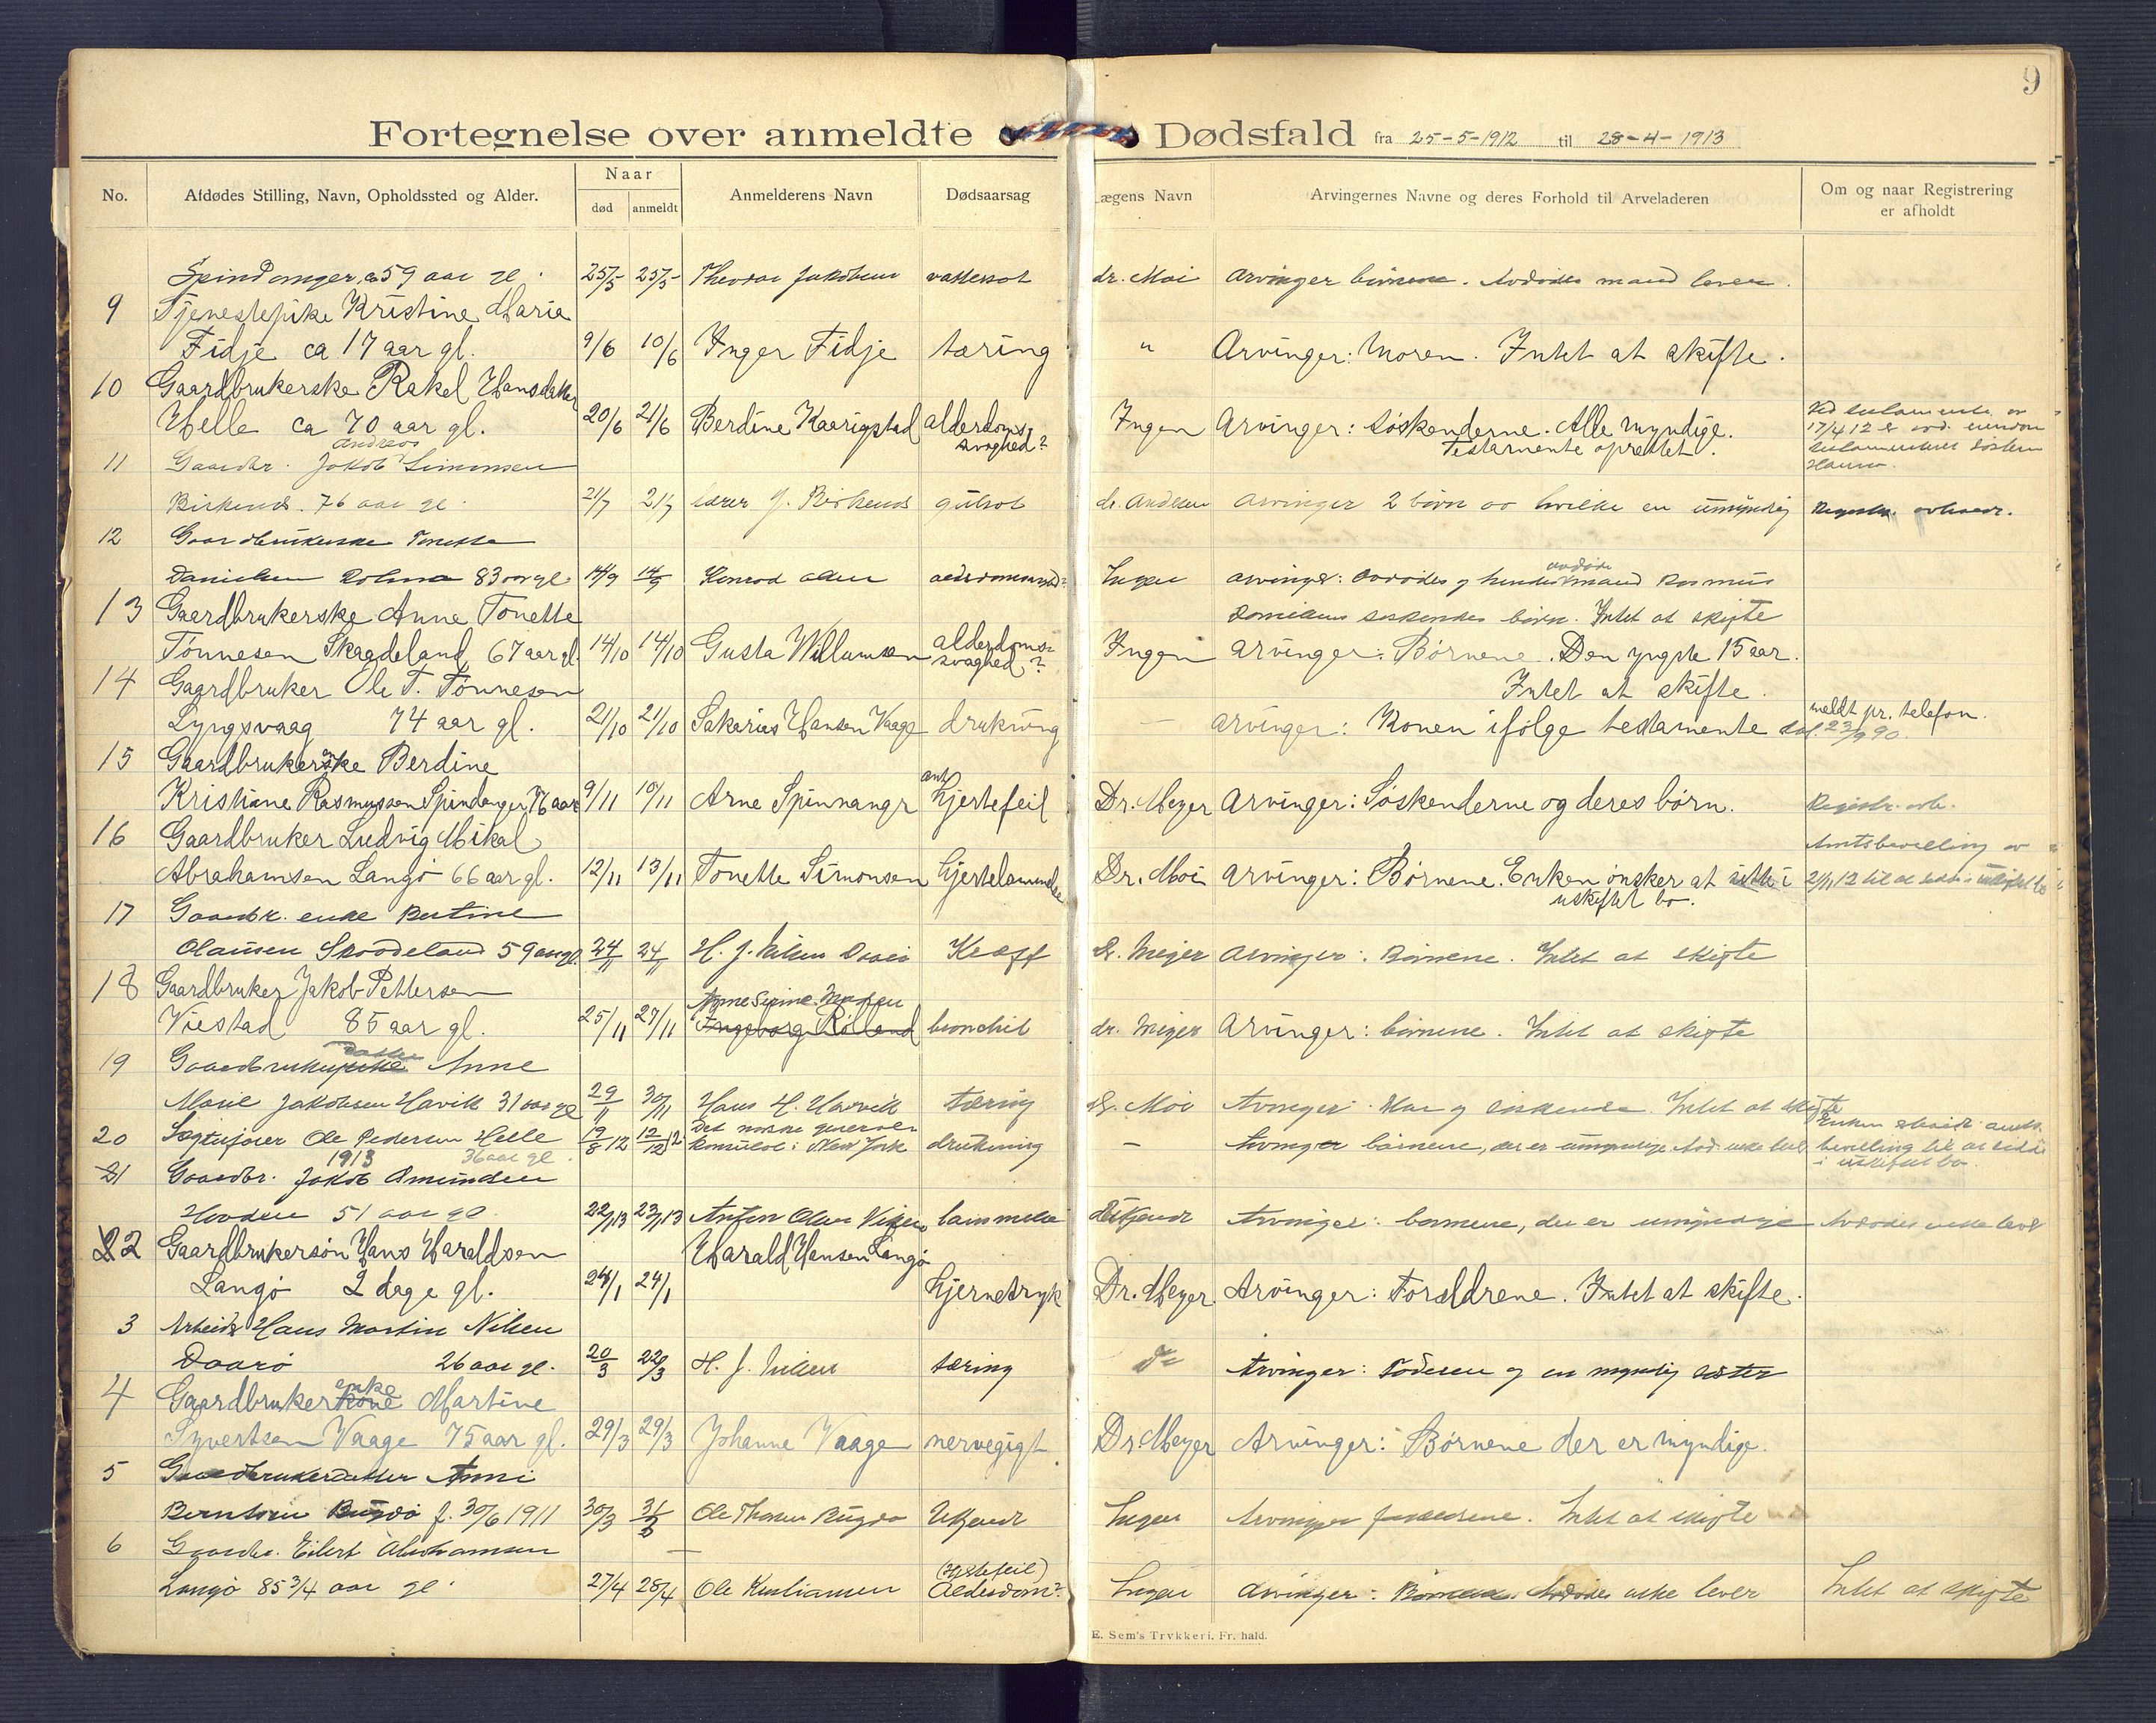 9
Fortegnelse over anmeldte Dødsfald fra 25-5-1912 til 28-4-1913
No. Afdødes Stilling, Navn, Opholdssted og Alder. Naar død anmeldt Anmelderens Navn Dødsaarsag Lægens Navn Arvingernes Navne og deres Forhold til Arveladeren Om og naar Registrering er afholdt
Spindanger, ca 59 aar gl. 25/5 25/5 Theodor Jakobsen vattersot dr. Moi Arvinger børnene. Avdødes mand lever.
9 Tjenestepike Kristine Maria
Fidje ca 17 aar gl. 9/6 10/6 Inger Fidje tæring " Arvinger: Moren. Intet at skifte.
10 Gaardbrukerske Rakel Hansdatter
Helle ca 70 aar gl. 20/6 21/6 Berdine Kaerigstad alderdoms-svaghed? Ingen Arvinger: Søskenderne. Alle myndige.
Testamente oprettet.
Ved testamente av 17/4 12 er avd. eiendom testamenteret søsteren
11 Gaardbr. Jakob Andreas Simonsen
Birkenes. 76 aar gl. 21/7 21/7 J. Birkenes gulsot dr. Andersen Arvinger 2 børn av hvilke en umyndig Registr. avholdt.
12 Gaardbrukerske Tonette
Danielsen 83 aar gl. 14/9 14/9 Konrad Olsen alderdomssvaghed? Ingen Arvinger: Avdødes og hendes avdøde mand Rasmus
Danielsens søskendes børn. Intet at skifte
13 Gaardbrukerske Anne Tonette
Tønnesen Skaadeland, 67 aar gl. 14/10 14/10 Gusta Willumsen alderdoms-svaghed? Ingen Arvinger: Børnene. Den yngste 15 aar.
Intet at skifte.
14 Gaardbruker Ole T. Tønnesen
Lyngsvaag 74 aar gl. 21/10 21/10 Sakarias Hansen Vaage drukning — Arvinger: Konen ifølge testamente dat. 23/9 90. meldt pr. telefon.
15 Gaardbrukerske Berdine
Kristiane Rasmussen Spindanger 76 aar 9/11 10/11 Arne Spinnangr ant. hjertefeil Dr. Meyer Arvinger: Søskenderne og deres børn. Registr. avh.
16 Gaardbruker Ludvig Mikal
Abrahamsen Langø 66 aar gl. 12/11 13/11 Tonette Simonsen hjertelammelse Dr. Moi Arvinger: Børnene. Enken ønsker at sitte i
uskiftet bo.
Amtsbevilling av 2/11 12 til at sidde i uskiftet bo
17 Gaardbr. enke Bertine
Olausen Skaadeland 59 aar gl. 24/11 24/11 H. J. Nilsen Daarø Kræft dr. Meyer Arvinger: Børnene. Intet at skifte
18 Gaardbruker Jakob Pettersen
Viestad 85 aar gl. 25/11 27/11 Ingeborg Rølland Anne Serine Madsen bronchit dr. Meyer Arvinger: børnene. Intet at skifte
19 Gaardbrukerdatter Anne
Marie Jakobsen Havik 31 aar gl. 29/11 30/11 Hans H. Havik tæring dr. Moi Arvinger: Mor og søskende. Intet at skifte
20 Ole Pedersen Helle 36 aar gl. 19/8 12 12/12 12 Det norske generalkonsulat i New York drukning — Arvinger børnene, der er umyndige
Enken amtsbevilling til at sidde i uskiftet bo.
1913
21 Gaardbr. Jakob Amundsen
51 aar gl. 22/1 13 23/1 13 Anton Olsen lammelse Ukjendt Arvinger: børnene, der er umyndige Avdødes enke lever
22 Gaardbrukersøn Hans Haraldsen
Langø 2 dage gl. 24/1 24/1 Harald Hansen Langø hjernetryk Dr. Meyer Arvinger: Forældrene. Intet at skifte.
3 Arbeider Hans Martin Nilsen
Daarø 26 aar gl. 20/3 22/3 H. J. Nilsen tæring do Arvinger: Faderen og en myndig søster
4 Gaardbrukerkone enke Martine
Syvertsen Vaage 75 aar gl. 29/3 29/3 Johanne Vaage nervegigt. Dr. Meyer Arvinger: Børnene der er myndige.
5 Gaardbrukerdatter Anni
Berntsen Rugdø f. 30/6 1911 30/3 31/3 Ole Thorsen Rugdø Ukjendt Ingen Arvinger forældrene. Intet at skifte
6 Gaardbr. Eilert Abrahamsen —
Langø 85 3/4 aar gl. 27/4 28/4 Ole Kristiansen (Hjertefeil) Alderdom? Ingen Arvinger: Børnene. Avdødes enke lever Intet at skifte
E. Sem's Trykkeri, Fr. hald.